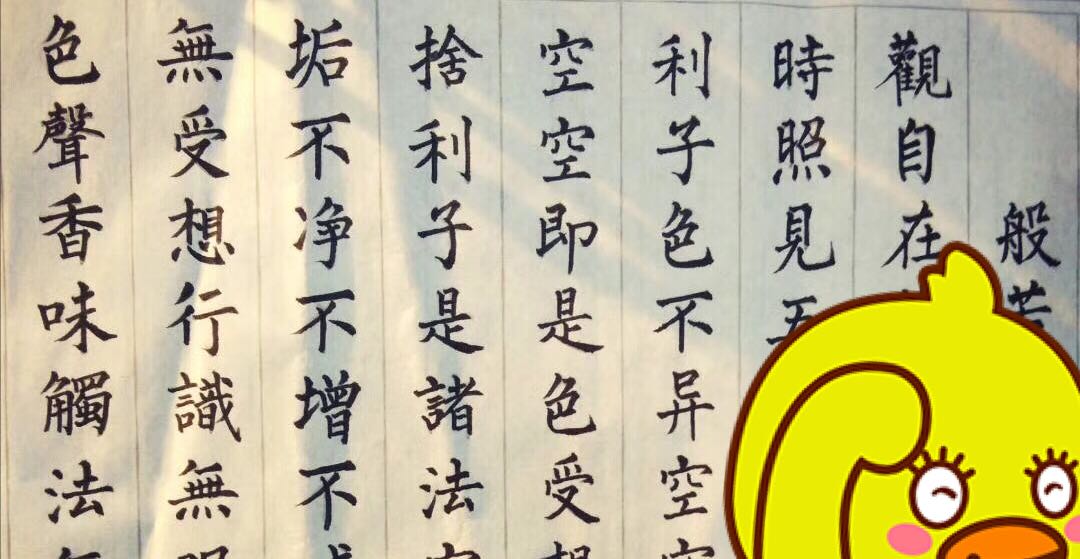 般若
觀自在
時照見五
利子色不异空空
空空即是色受想
捨利子是諸法空
垢不净不增不
無受想行識無眼
色聲香味觸法無